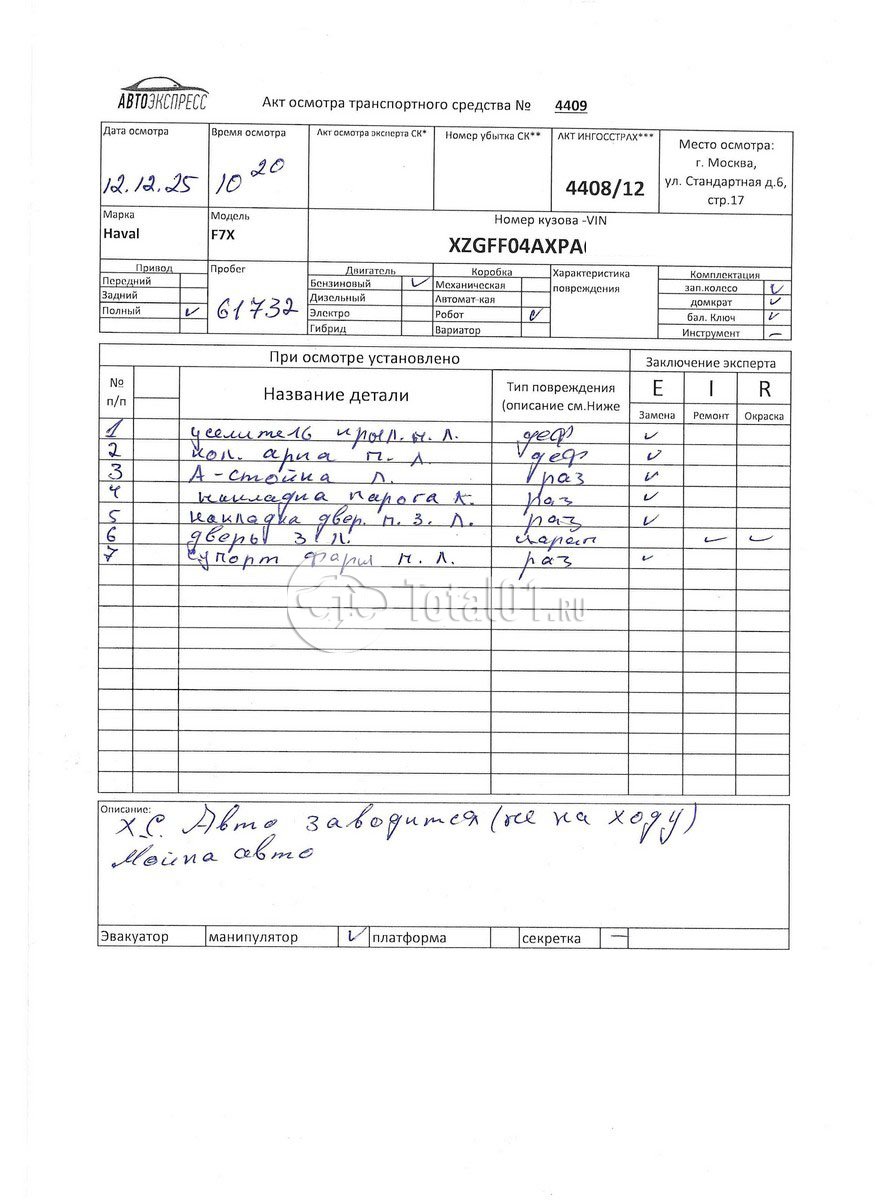 АВТОЭКСПРЕСС
Акт осмотра транспортного средства № 4409
Дата осмотра Время осмотра Акт осмотра эксперта СК* Номер убытка СК** АКТ ИНГОССТРАХ*** Место осмотра:
г. Москва,
ул. Стандартная д.6,
стр.17
12.12.25 10 20 4408/12
Марка Модель Номер кузова -VIN
Haval F7X XZGFF04AXPA
Привод Пробег Двигатель Коробка Характеристика повреждения Комплектация
Передний Бензиновый ✓ Механическая зап.колесо ✓
Задний Дизельный Автомат-кая домкрат ✓
Полный ✓ 61732 Электро Робот ✓ бал. Ключ ✓
Гибрид Вариатор Инструмент –
При осмотре установлено Заключение эксперта
№ п/п Название детали Тип повреждения (описание см.Ниже E I R
Замена Ремонт Окраска
1 уселитель крыл. н. Л. деф ✓
2 арка п. Л деф ✓
3 А-стойка Л. раз ✓
4 накладка парога раз ✓
5 накладка двер. п. З. Л. раз ✓
6 дверь З Л. царап ✓ ✓
7 супорт фары п. Л. раз ✓
Total01.RU
Описание:
Х.С. Авто заводится (не на ходу)
Мойка авто
Эвакуатор манипулятор ✓ платформа секретка –